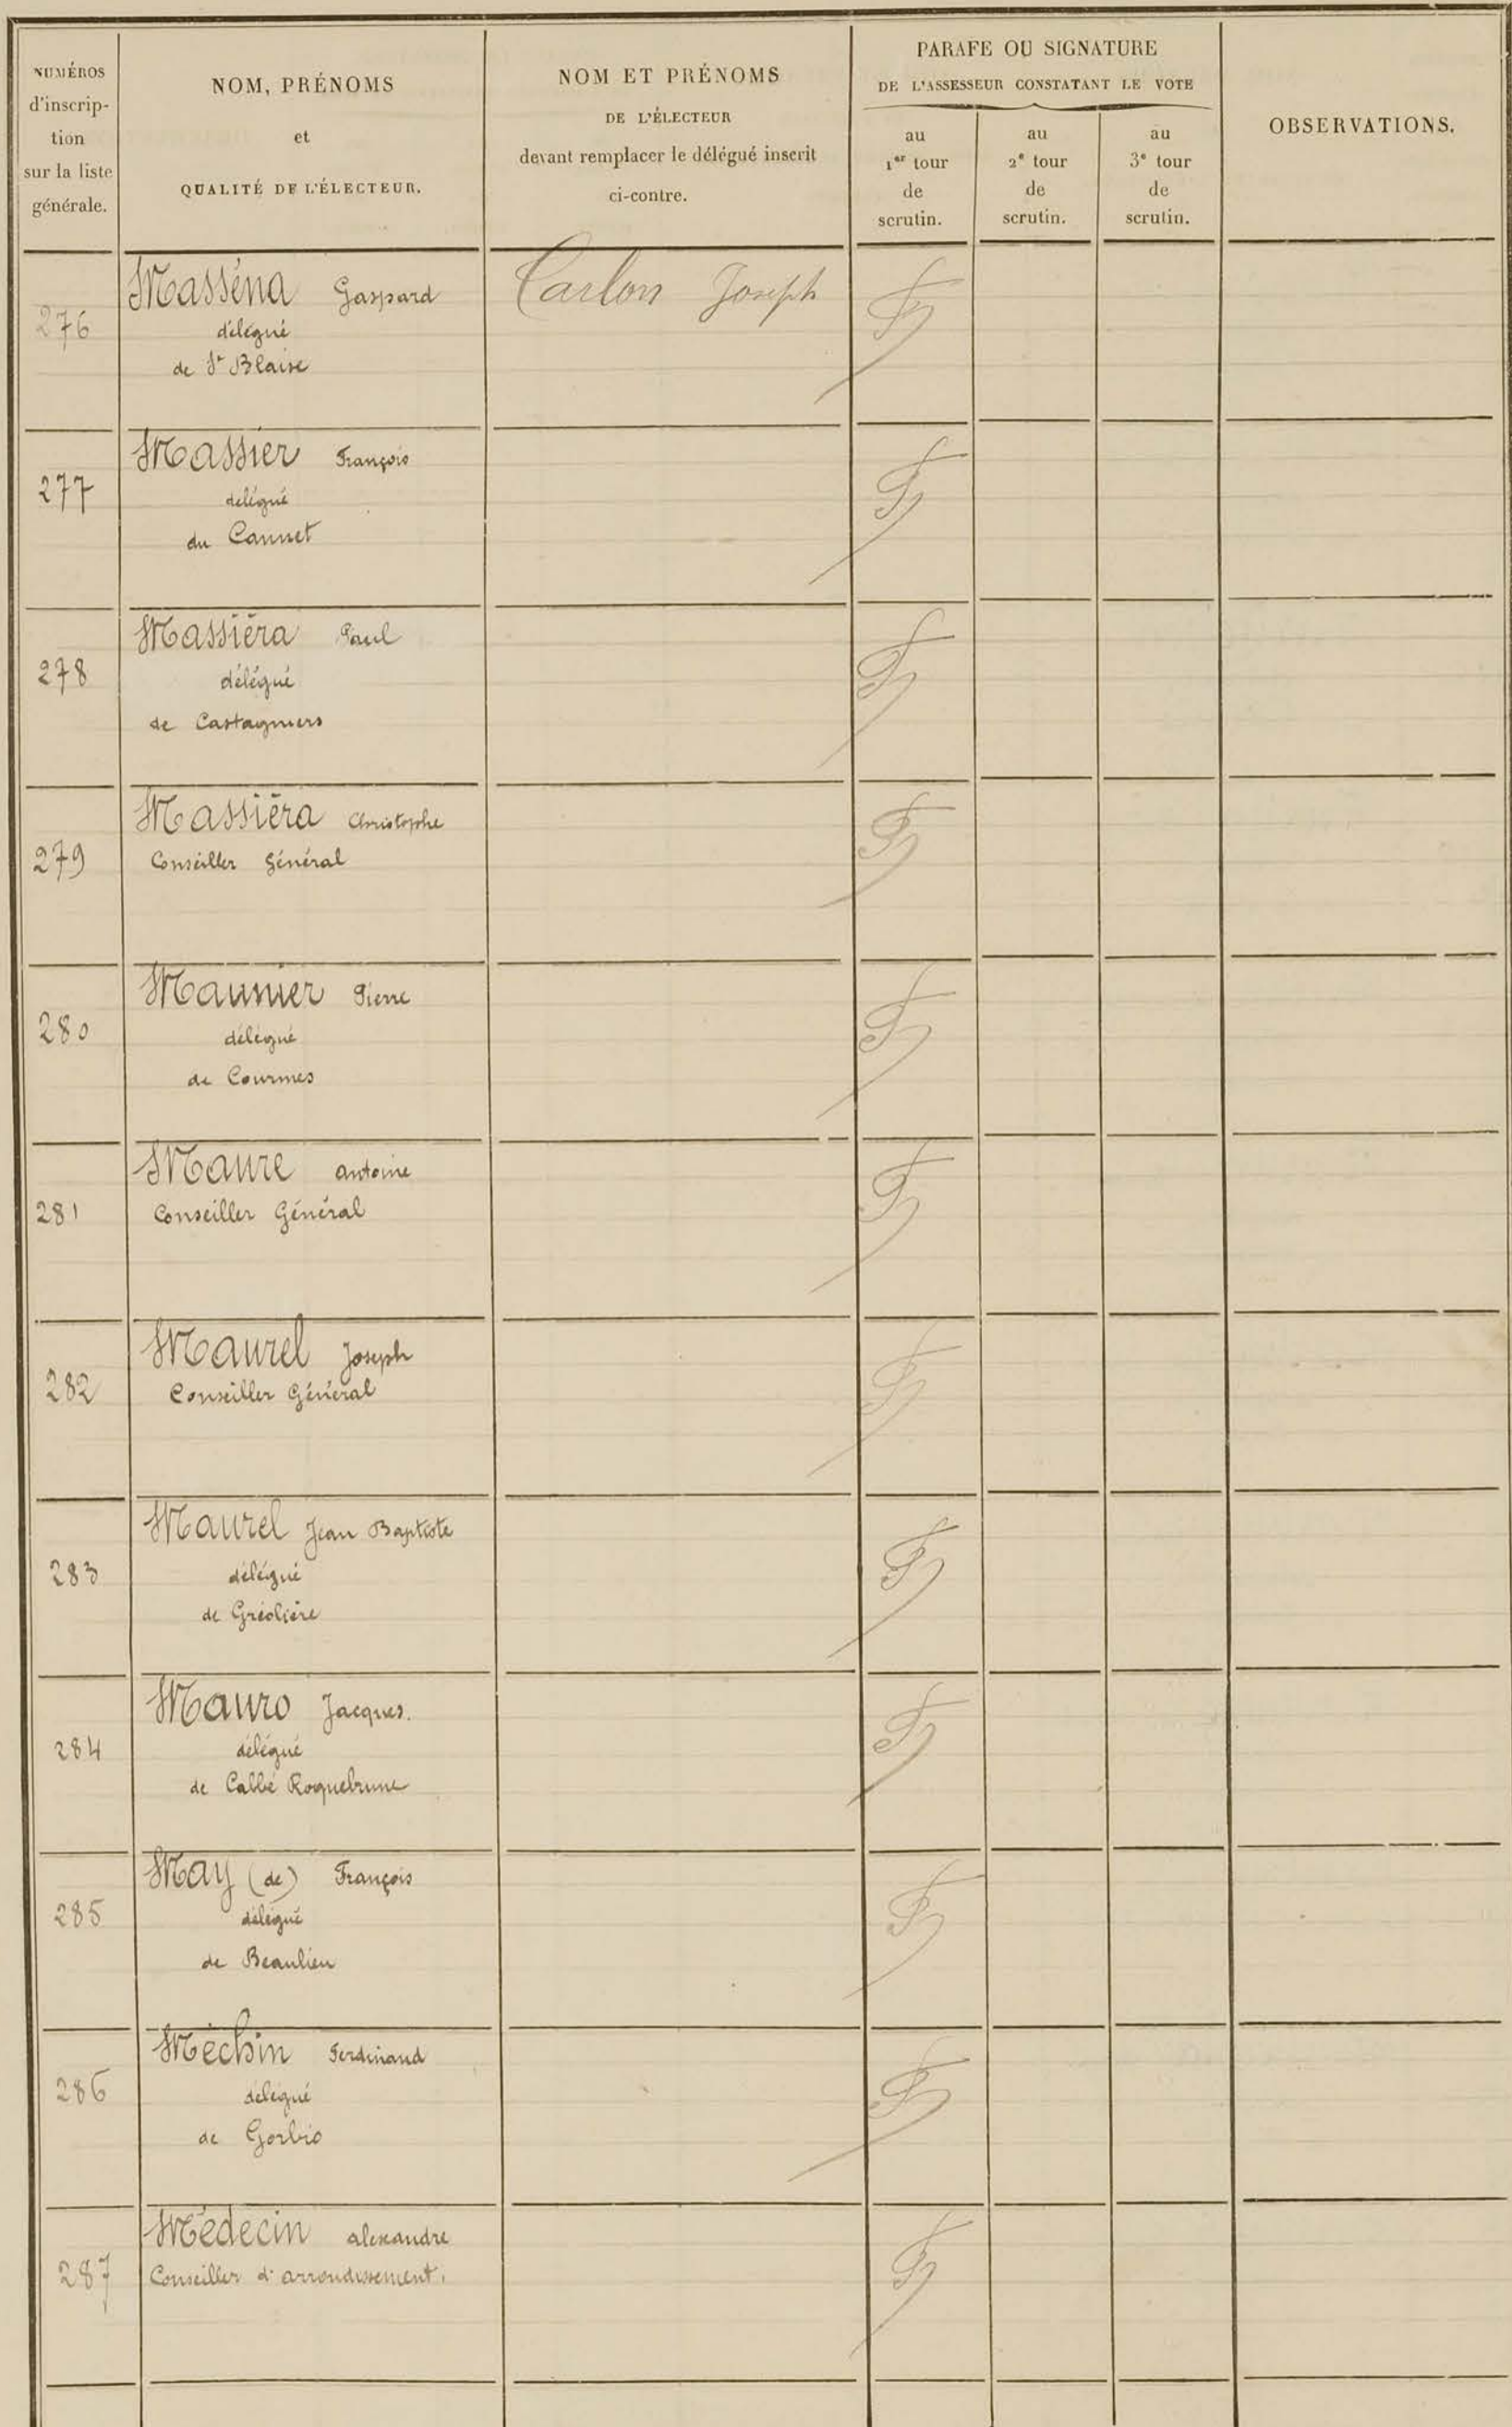 NUMÉROS
d'inscrip-
tion
sur la liste
générale.
NOM, PRÉNOMS
et
QUALITÉ DE L'ÉLECTEUR.
NOM ET PRÉNOMS
DE L'ÉLECTEUR
devant remplacer le délégué inscrit
ci-contre.
PARAFE OU SIGNATURE
DE L'ASSESSEUR CONSTATANT LE VOTE
au
1er tour
de
scrutin.
au
2e tour
de
scrutin.
au
3e tour
de
scrutin.
OBSERVATIONS.
276
Masséna Gaspard
délégué
de St Blaise
Carlon Joseph
277
Massier François
délégué
du Cannet
278
Massiéra Paul
délégué
de Castagniers
279
Massiéra Christophe
Conseiller Général
280
Maunier Pierre
délégué
de Courmes
281
Maure Antoine
Conseiller Général
282
Maurel Joseph
Conseiller Général
283
Maurel Jean Baptiste
délégué
de Gréolière
284
Mauro Jacques.
délégué
de Cabbé Roquebrune
285
May (de) François
délégué
de Beaulieu
286
Méchin Ferdinand
délégué
de Gorbio
287
Médecin Alexandre
Conseiller d'arrondissement.